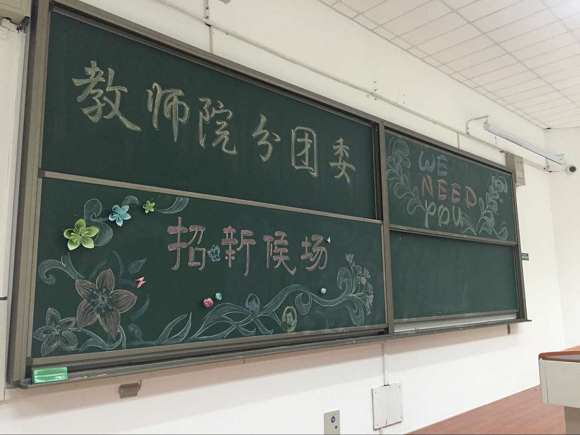 教师院分团委
招新候场
WE
NEED
YOU